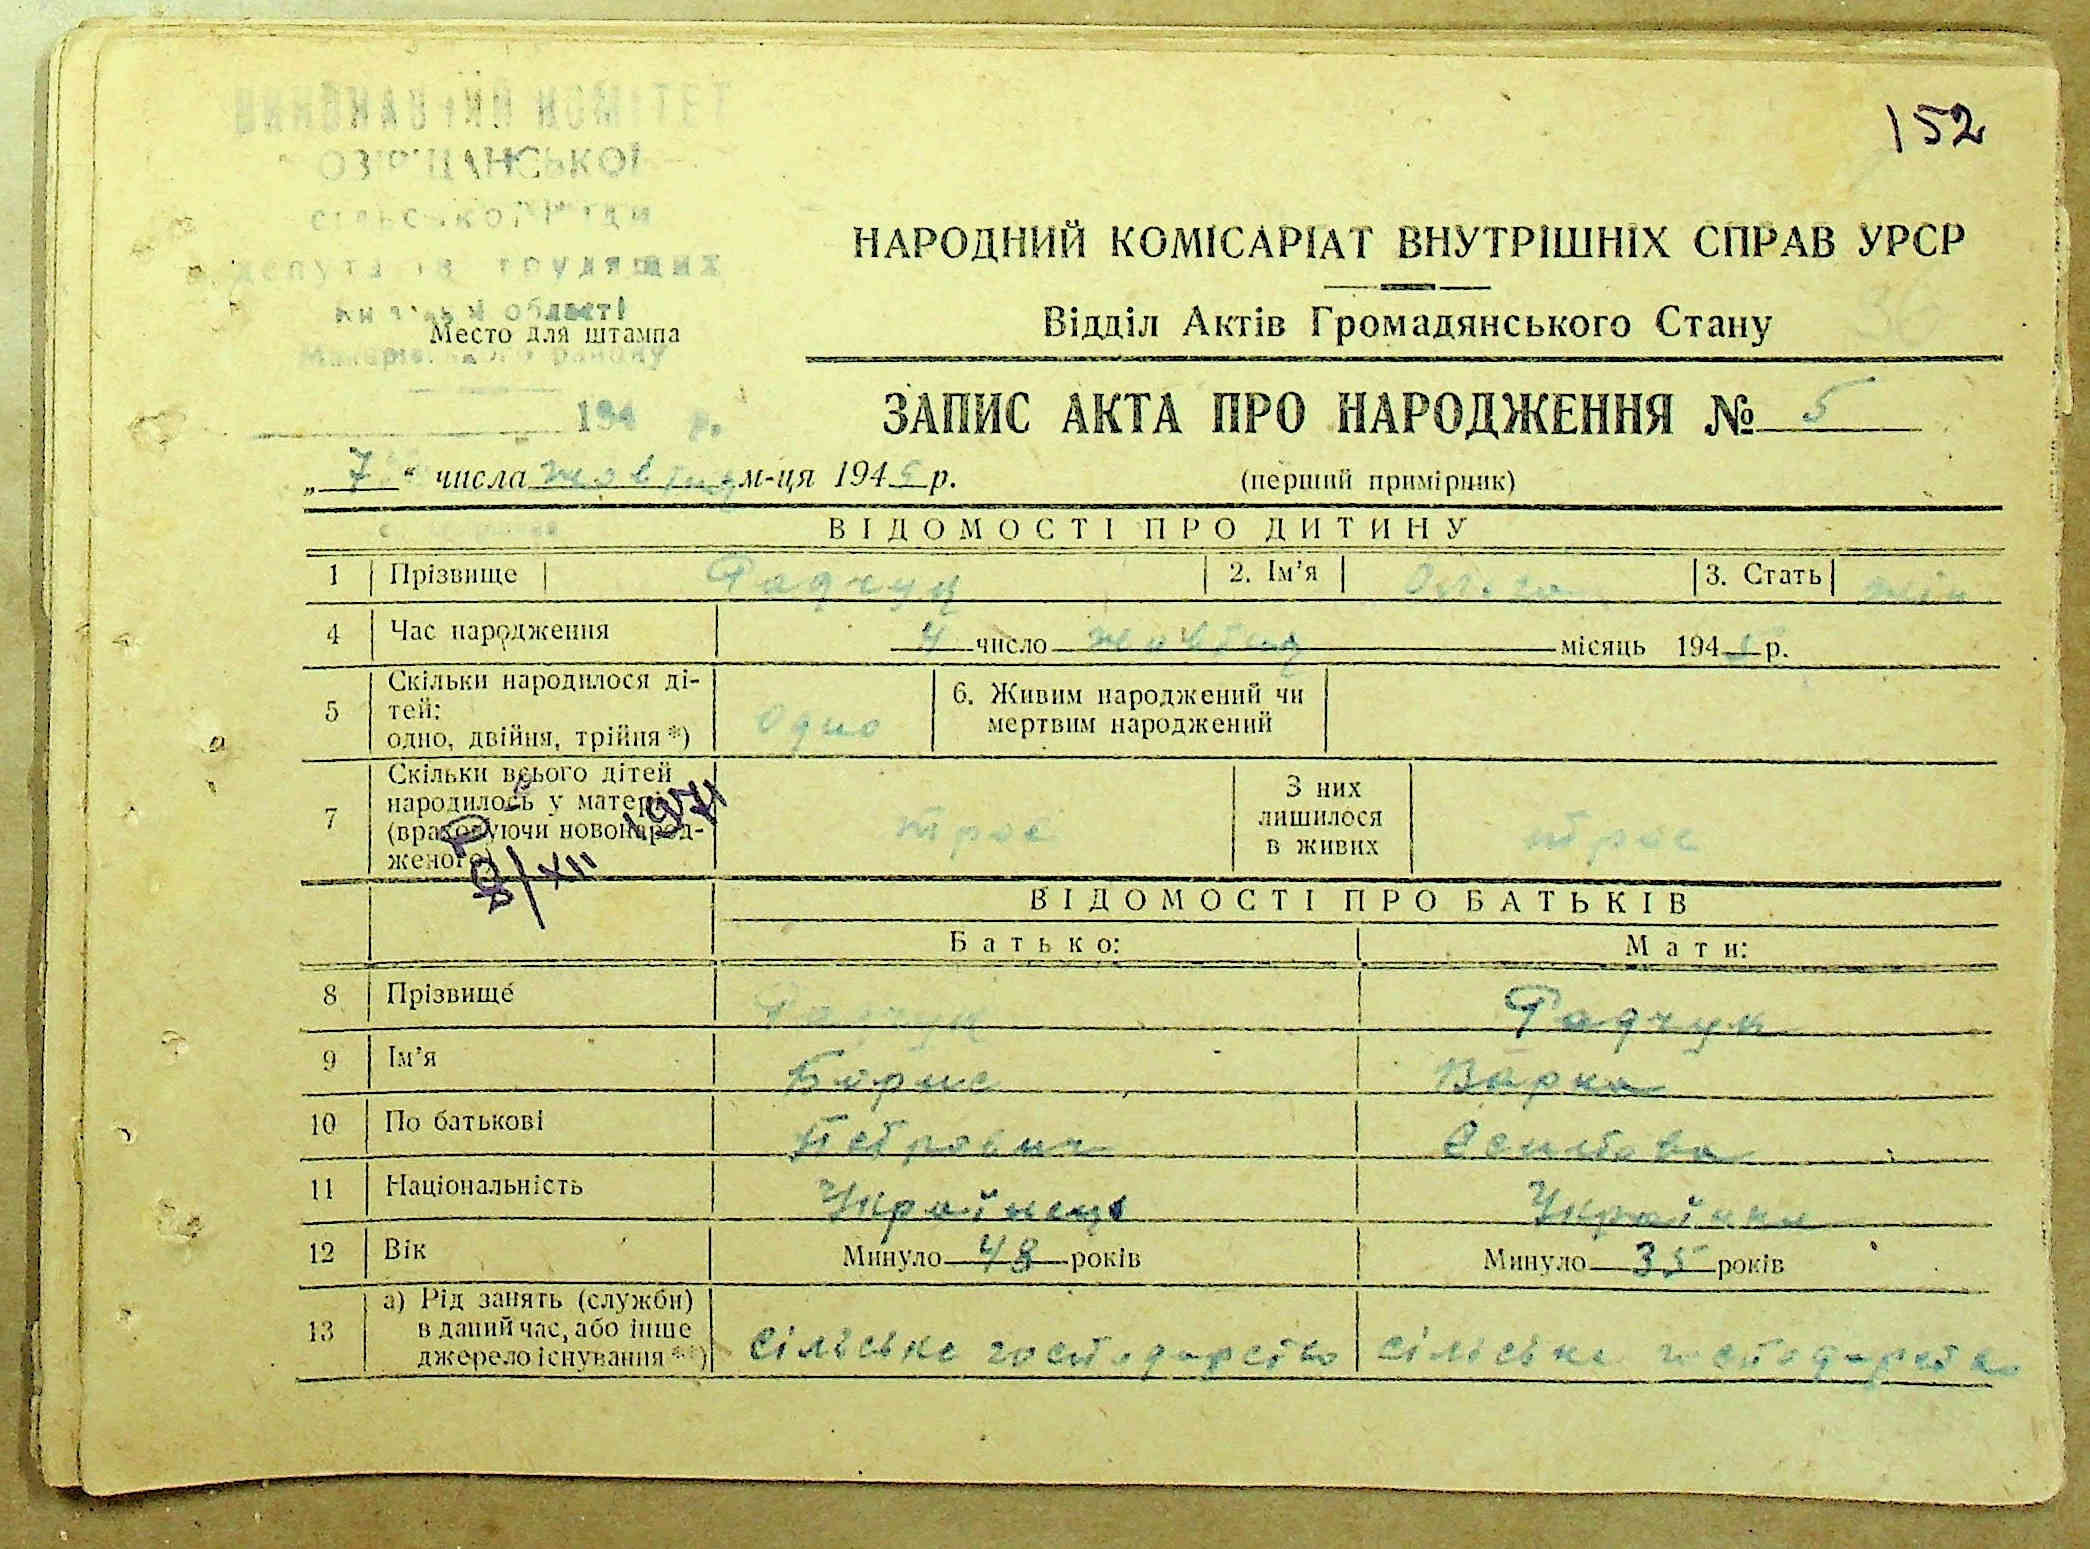 152
ВИКОНАВЧИЙ КОМІТЕТ
сільської Ради
депутатів трудящих
області
Место для штампа
Макарівського району
194 р.
НАРОДНИЙ КОМІСАРІАТ ВНУТРІШНІХ СПРАВ УРСР
Відділ Актів Громадянського Стану
36
ЗАПИС АКТА ПРО НАРОДЖЕННЯ № 5
„ 7 “ числа жовтня м-ця 1945 р.
(перший примірник)
ВІДОМОСТІ ПРО ДИТИНУ
1 Прізвище Радчук 2. Ім'я Ольга 3. Стать жін
4 Час народження 4 число жовтня місяць 1945 р.
5 Скільки народилося ді-
тей:
одно, двійня, трійня *) Одно
6. Живим народжений чи
мертвим народжений
7 Скільки всього дітей
народилось у матері
(враховуючи новонарод-
женого) троє
З них
лишилося
в живих троє
XII 1971
ВІДОМОСТІ ПРО БАТЬКІВ
Батько: Мати:
8 Прізвище Радчук Радчук
9 Ім'я Борис Варка
10 По батькові Петрович
11 Національність Українець Українка
12 Вік Минуло 48 років Минуло 35 років
13 а) Рід занять (служби)
в даний час, або інше
джерело існування **) сільське господарство сільське господарство